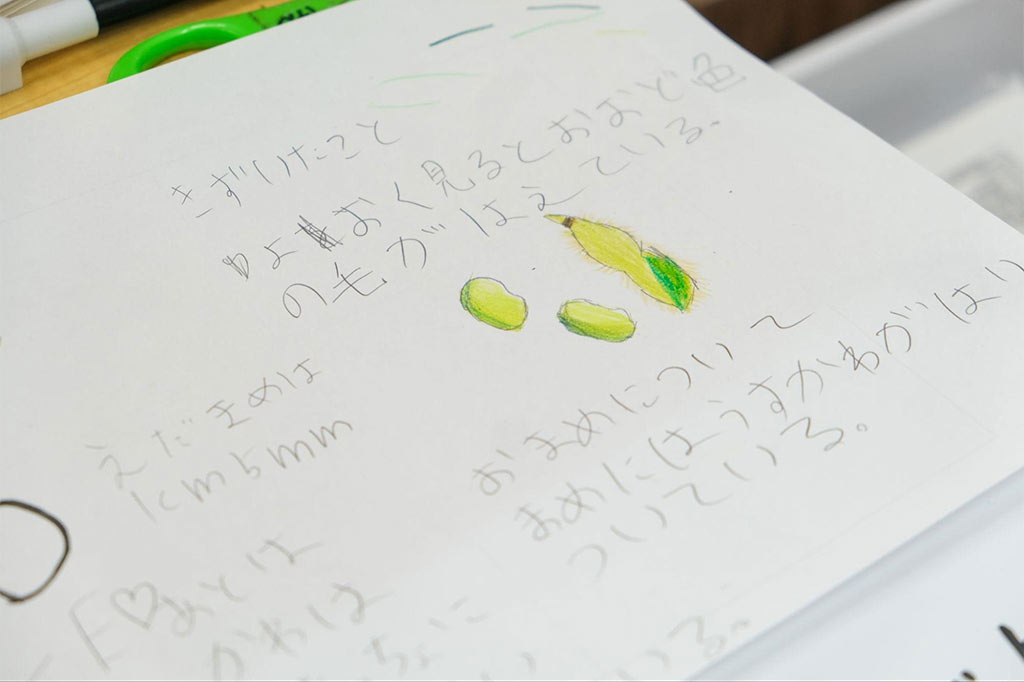 きずいたこと
よおく見るとおおど色
の毛がはえている。
えだまめは
1cm5mm
おまめについて
まめにはうすかわがはり
ついている。
あとは
かわは